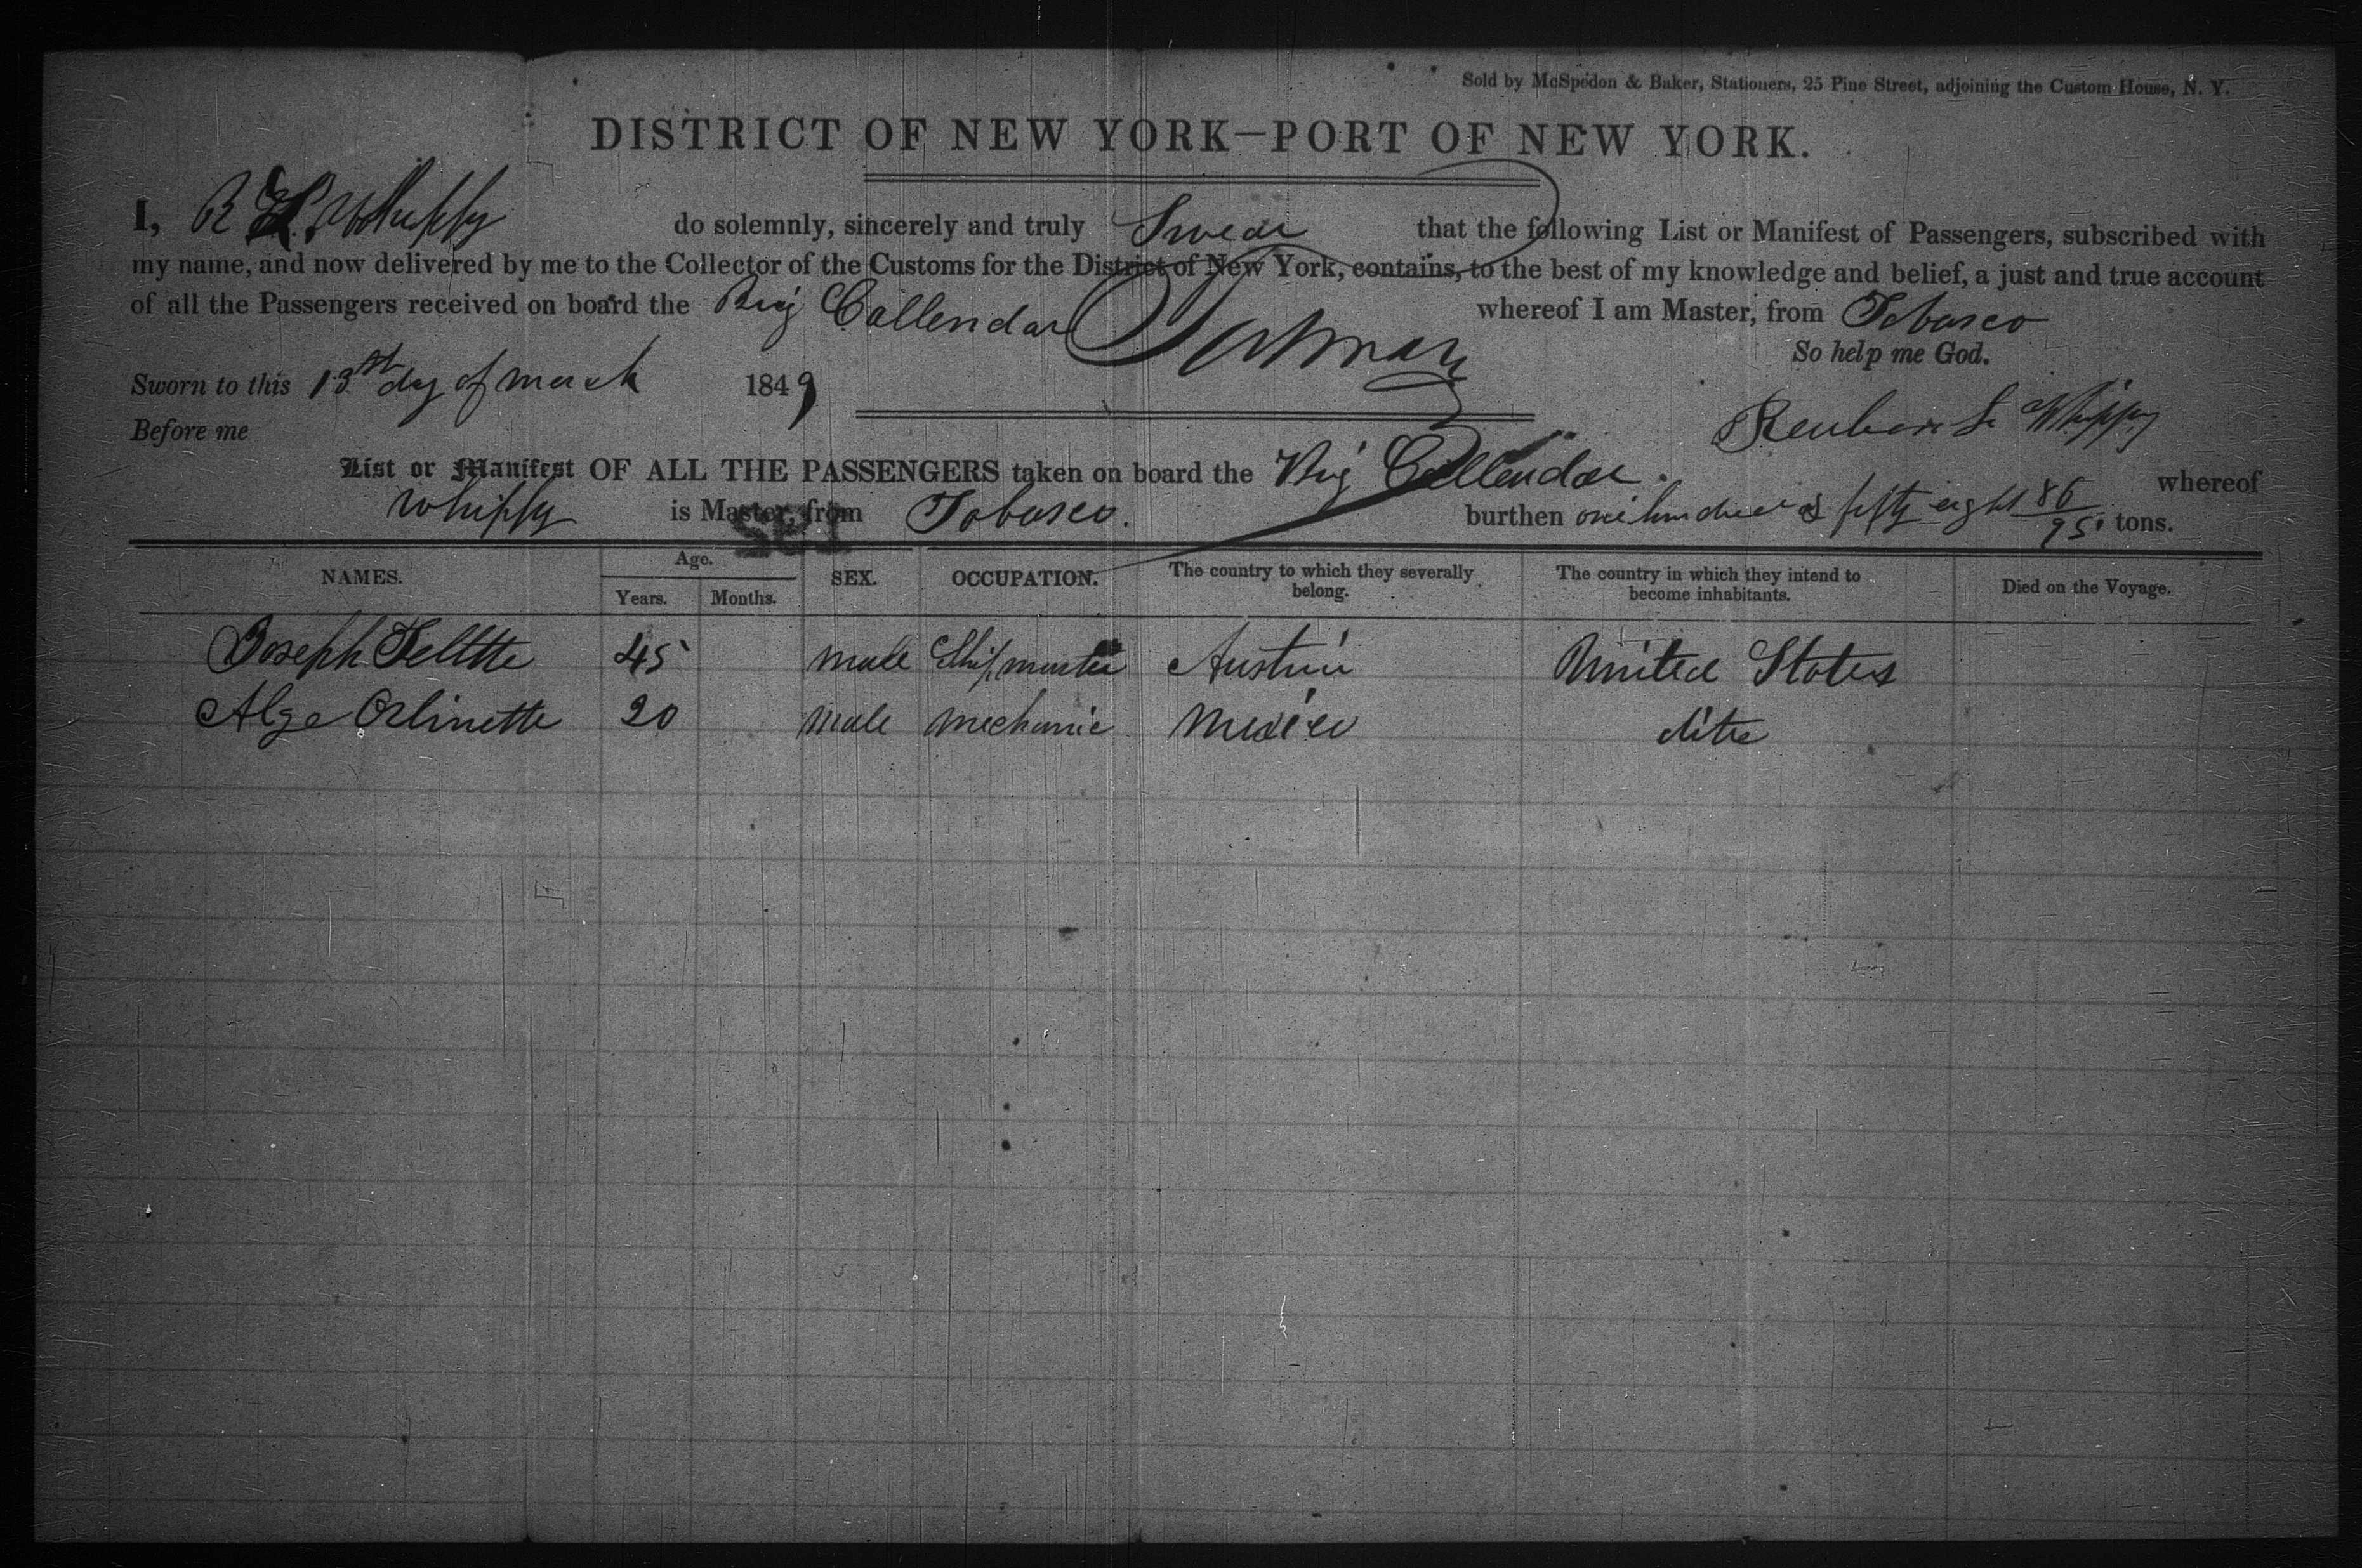 Sold by McSpedon & Baker, Stationers, 25 Pine Street, adjoining the Custom House, N. Y.
DISTRICT OF NEW YORK—PORT OF NEW YORK.
I, R L Whippy do solemnly, sincerely and truly Swear that the following List or Manifest of Passengers, subscribed with
my name, and now delivered by me to the Collector of the Customs for the District of New York, contains, to the best of my knowledge and belief, a just and true account
of all the Passengers received on board the Brig Callendar whereof I am Master, from Tobasco
So help me God.
Sworn to this 13st day of march 1849
Reuben L Whippy
Before me
List or Manifest OF ALL THE PASSENGERS taken on board the Brig Callendar. whereof
Whippy is Master, from Tobasco. burthen one hundred & fifty eight 86/95 tons.
NAMES. Age. SEX. OCCUPATION. The country to which they severally belong. The country in which they intend to become inhabitants. Died on the Voyage.
Years. Months.
Joseph 45 male Shipmaster Austria United States
20 male mechanic Mexico